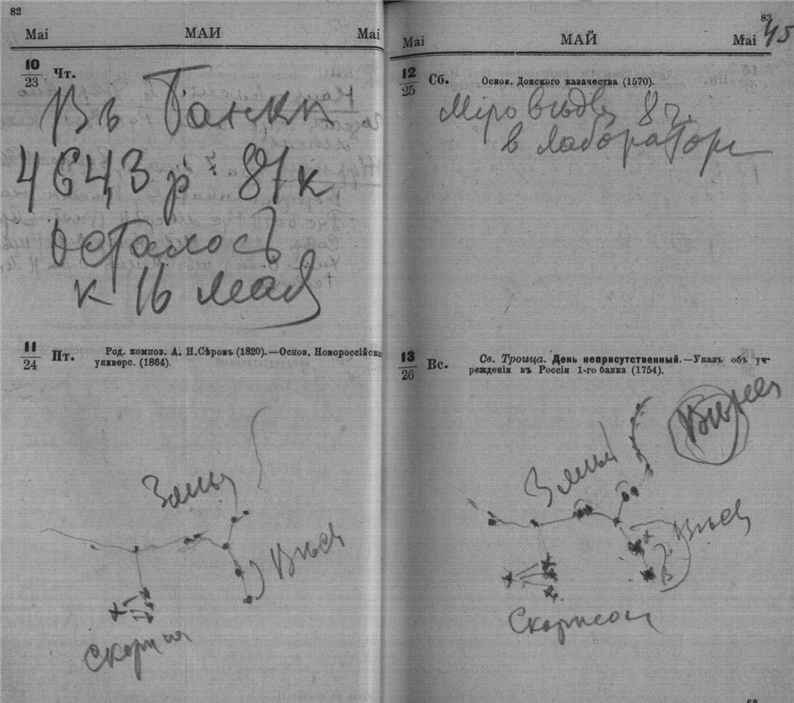 82
Mai МАЙ Mai
10/23 Чт.
Въ Банкѣ
4643 р 87 к
осталось
к 16 мая
11/24 Пт. Род. композ. А. Н. Сѣровъ (1820).—Основ. Новороссійска
универс. (1864).
Змея
Весы
Скорпион
83
Mai МАЙ Mai 45
12/25 Сб. Основ. Донского казачества (1570).
8 ч.
в лаборатор
13/26 Вс. Св. Троица. День неприсутственный.—Указъ объ уч-
режденіи въ Россіи 1-го банка (1754).
Змея
Весы
Скорпион